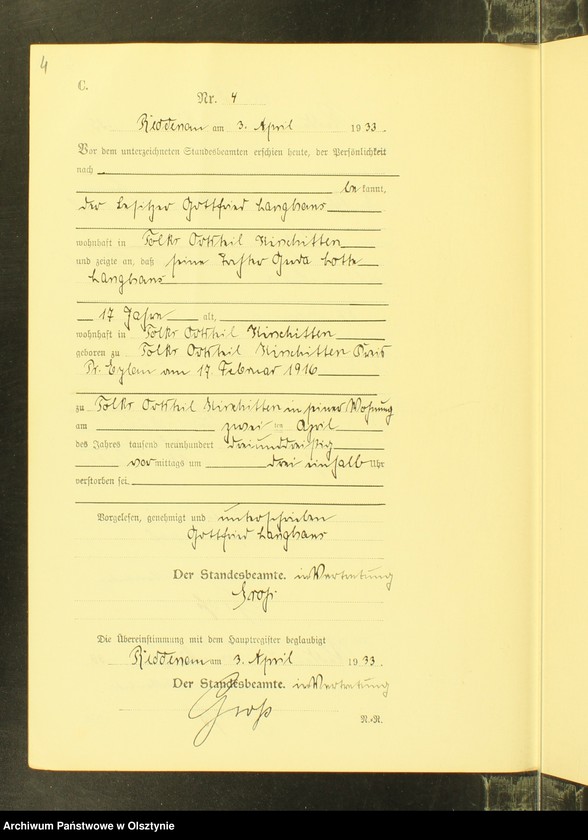 4
C.
Nr. 4
am 3. April 1933.
Vor dem unterzeichneten Standesbeamten erschien heute, der Persönlichkeit
nach
bekannt,
der Besitzer Gottfried Langhans
wohnhaft in Tolks Ortsteil Hirschitten
und zeigte an, daß seine Tochter Gerda Lotte
Langhans
17 Jahre alt,
wohnhaft in Tolks Ortsteil Hirschitten
geboren zu Tolks Ortsteil Hirschitten Kreis
Pr. Eylau am 17 Februar 1916
zu Tolks Ortsteil Hirschitten in seiner Wohnung
am zwei ten April
des Jahres tausend neunhundert dreiunddreißig
vormittags um drei einhalb Uhr
verstorben sei.
Vorgelesen, genehmigt und unterschrieben
Gottfried Langhans
Der Standesbeamte. in Vertretung
Groß
Die Übereinstimmung mit dem Hauptregister beglaubigt
am 3. April 1933.
Der Standesbeamte. in Vertretung
Groß
N.-R.
Archiwum Państwowe w Olsztynie